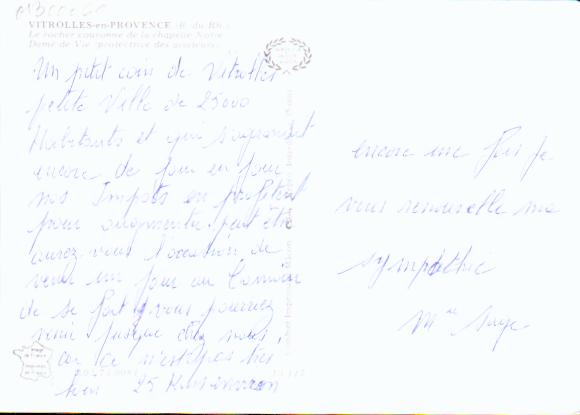 VITROLLES-en-PROVENCE (B. du Rh.)
Le rocher couronné de la chapelle Notre
Dame de Vie (protectrice des aviateurs)
Un petit coin de Vitrolles
petite Ville de 25000
Habitants et qui s'agrandit
encore de jour en jour
nos Impots en profitent
pour augmenter peut être
aurez vous l'occasion de
venir un jour au Camion
de se fait vous pourriez
venir jusque chez vous,
car ce n'est pas très
loin 25 Kms environ
encore une fois je
vous renouvelle ma
sympathie
Mme